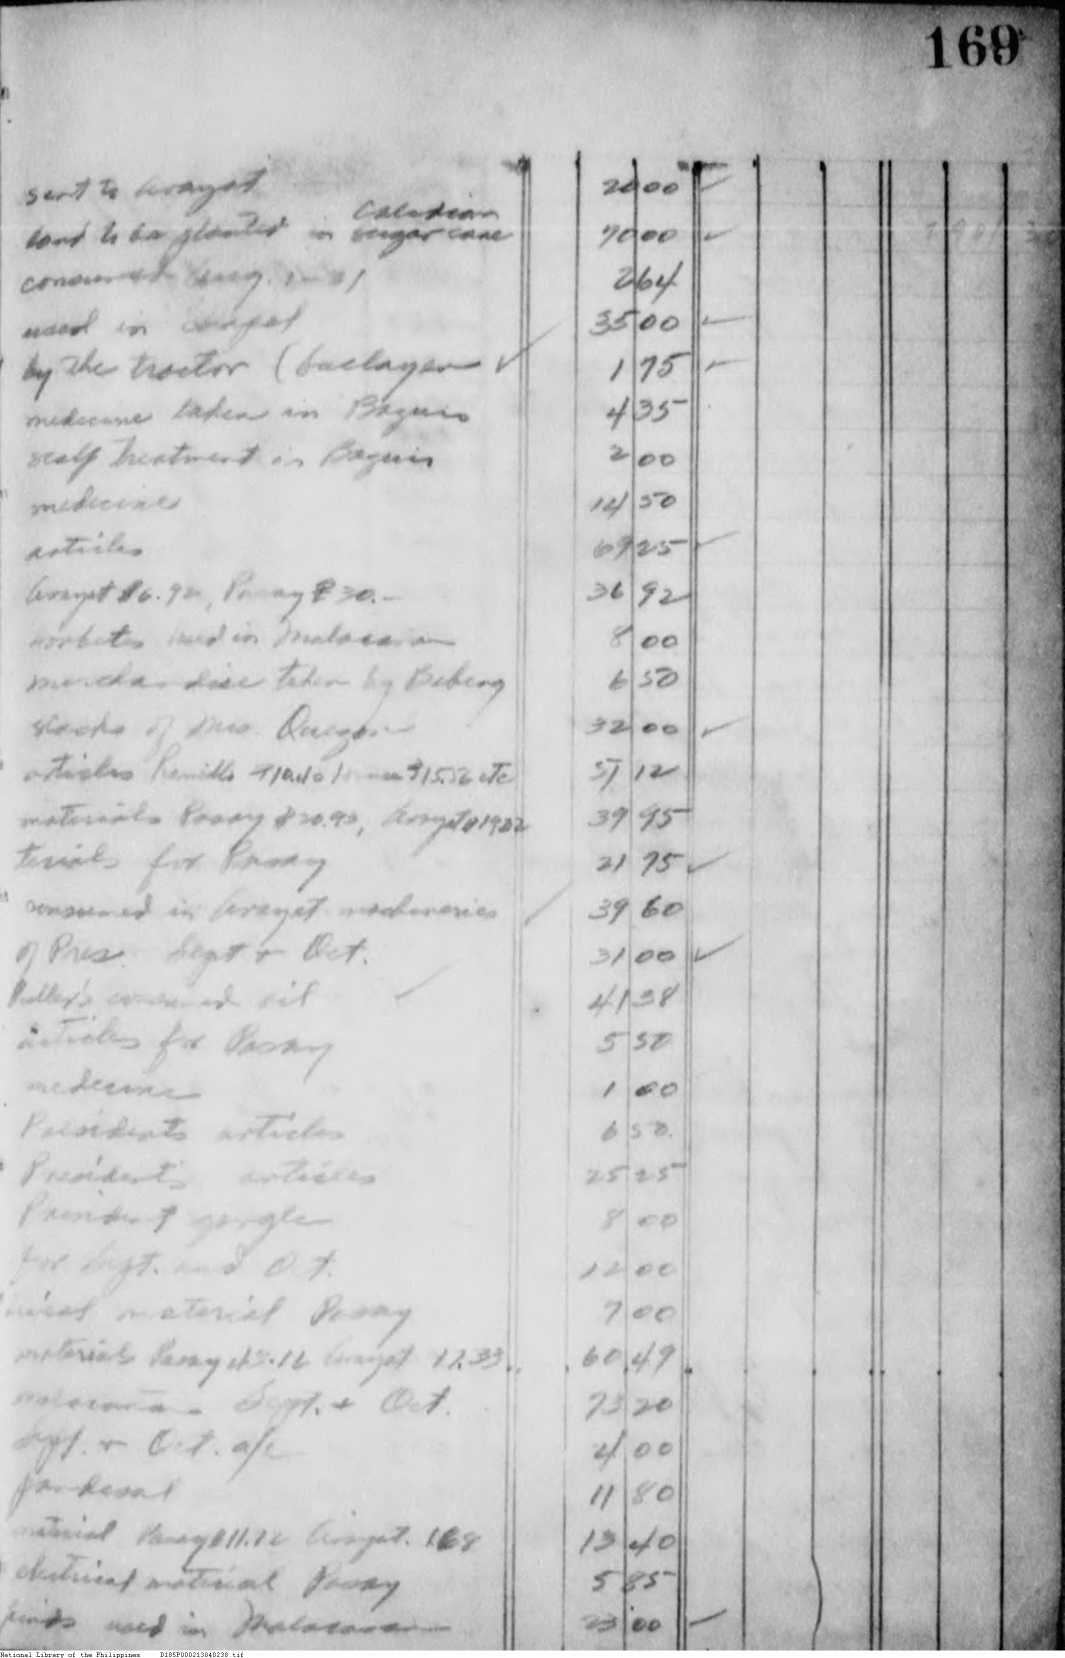 169
sent to Arayat 20 00
Caladian
land to be planted in sugar cane 70 00
consumed Aug. 1-31 2 64
used in 35 00
by the tractor ( 1 75
medicine taken in Baguio 4 35
scalp treatment in Baguio 2 00
medicine 14 50
articles 69 25
Arayat ₱6.92, Pasay ₱30.- 36 92
sorbetes used in Malacanan 8 00
merchandise taken by Bebeng 6 50
stocks of Mrs. Quezon 32 00
articles etc 51 12
materials Pasay ₱20.93, Arayat ₱19.02 39 95
terials for Pasay 21 75
consumed in Arayat machineries 39 60
of Pres. Sept + Oct. 31 00
consumed oil 41 38
articles for Pasay 5 50
medicine 1 00
Presidents articles 6 50
President's articles 25 25
President gargle 8 00
for Sept. and Oct. 12 00
material Pasay 7 00
materials Pasay 43.16 Arayat 17.33 60 49
Malacanan Sept. + Oct. 73 20
Sept. + Oct. a/c 4 00
pandesal 11 80
material Pasay ₱11.72 Arayat. 1.68 13 40
electrical material Pasay 5 85
used in Malacanan 23 00
National Library of the Philippines D185P000213040238.tif